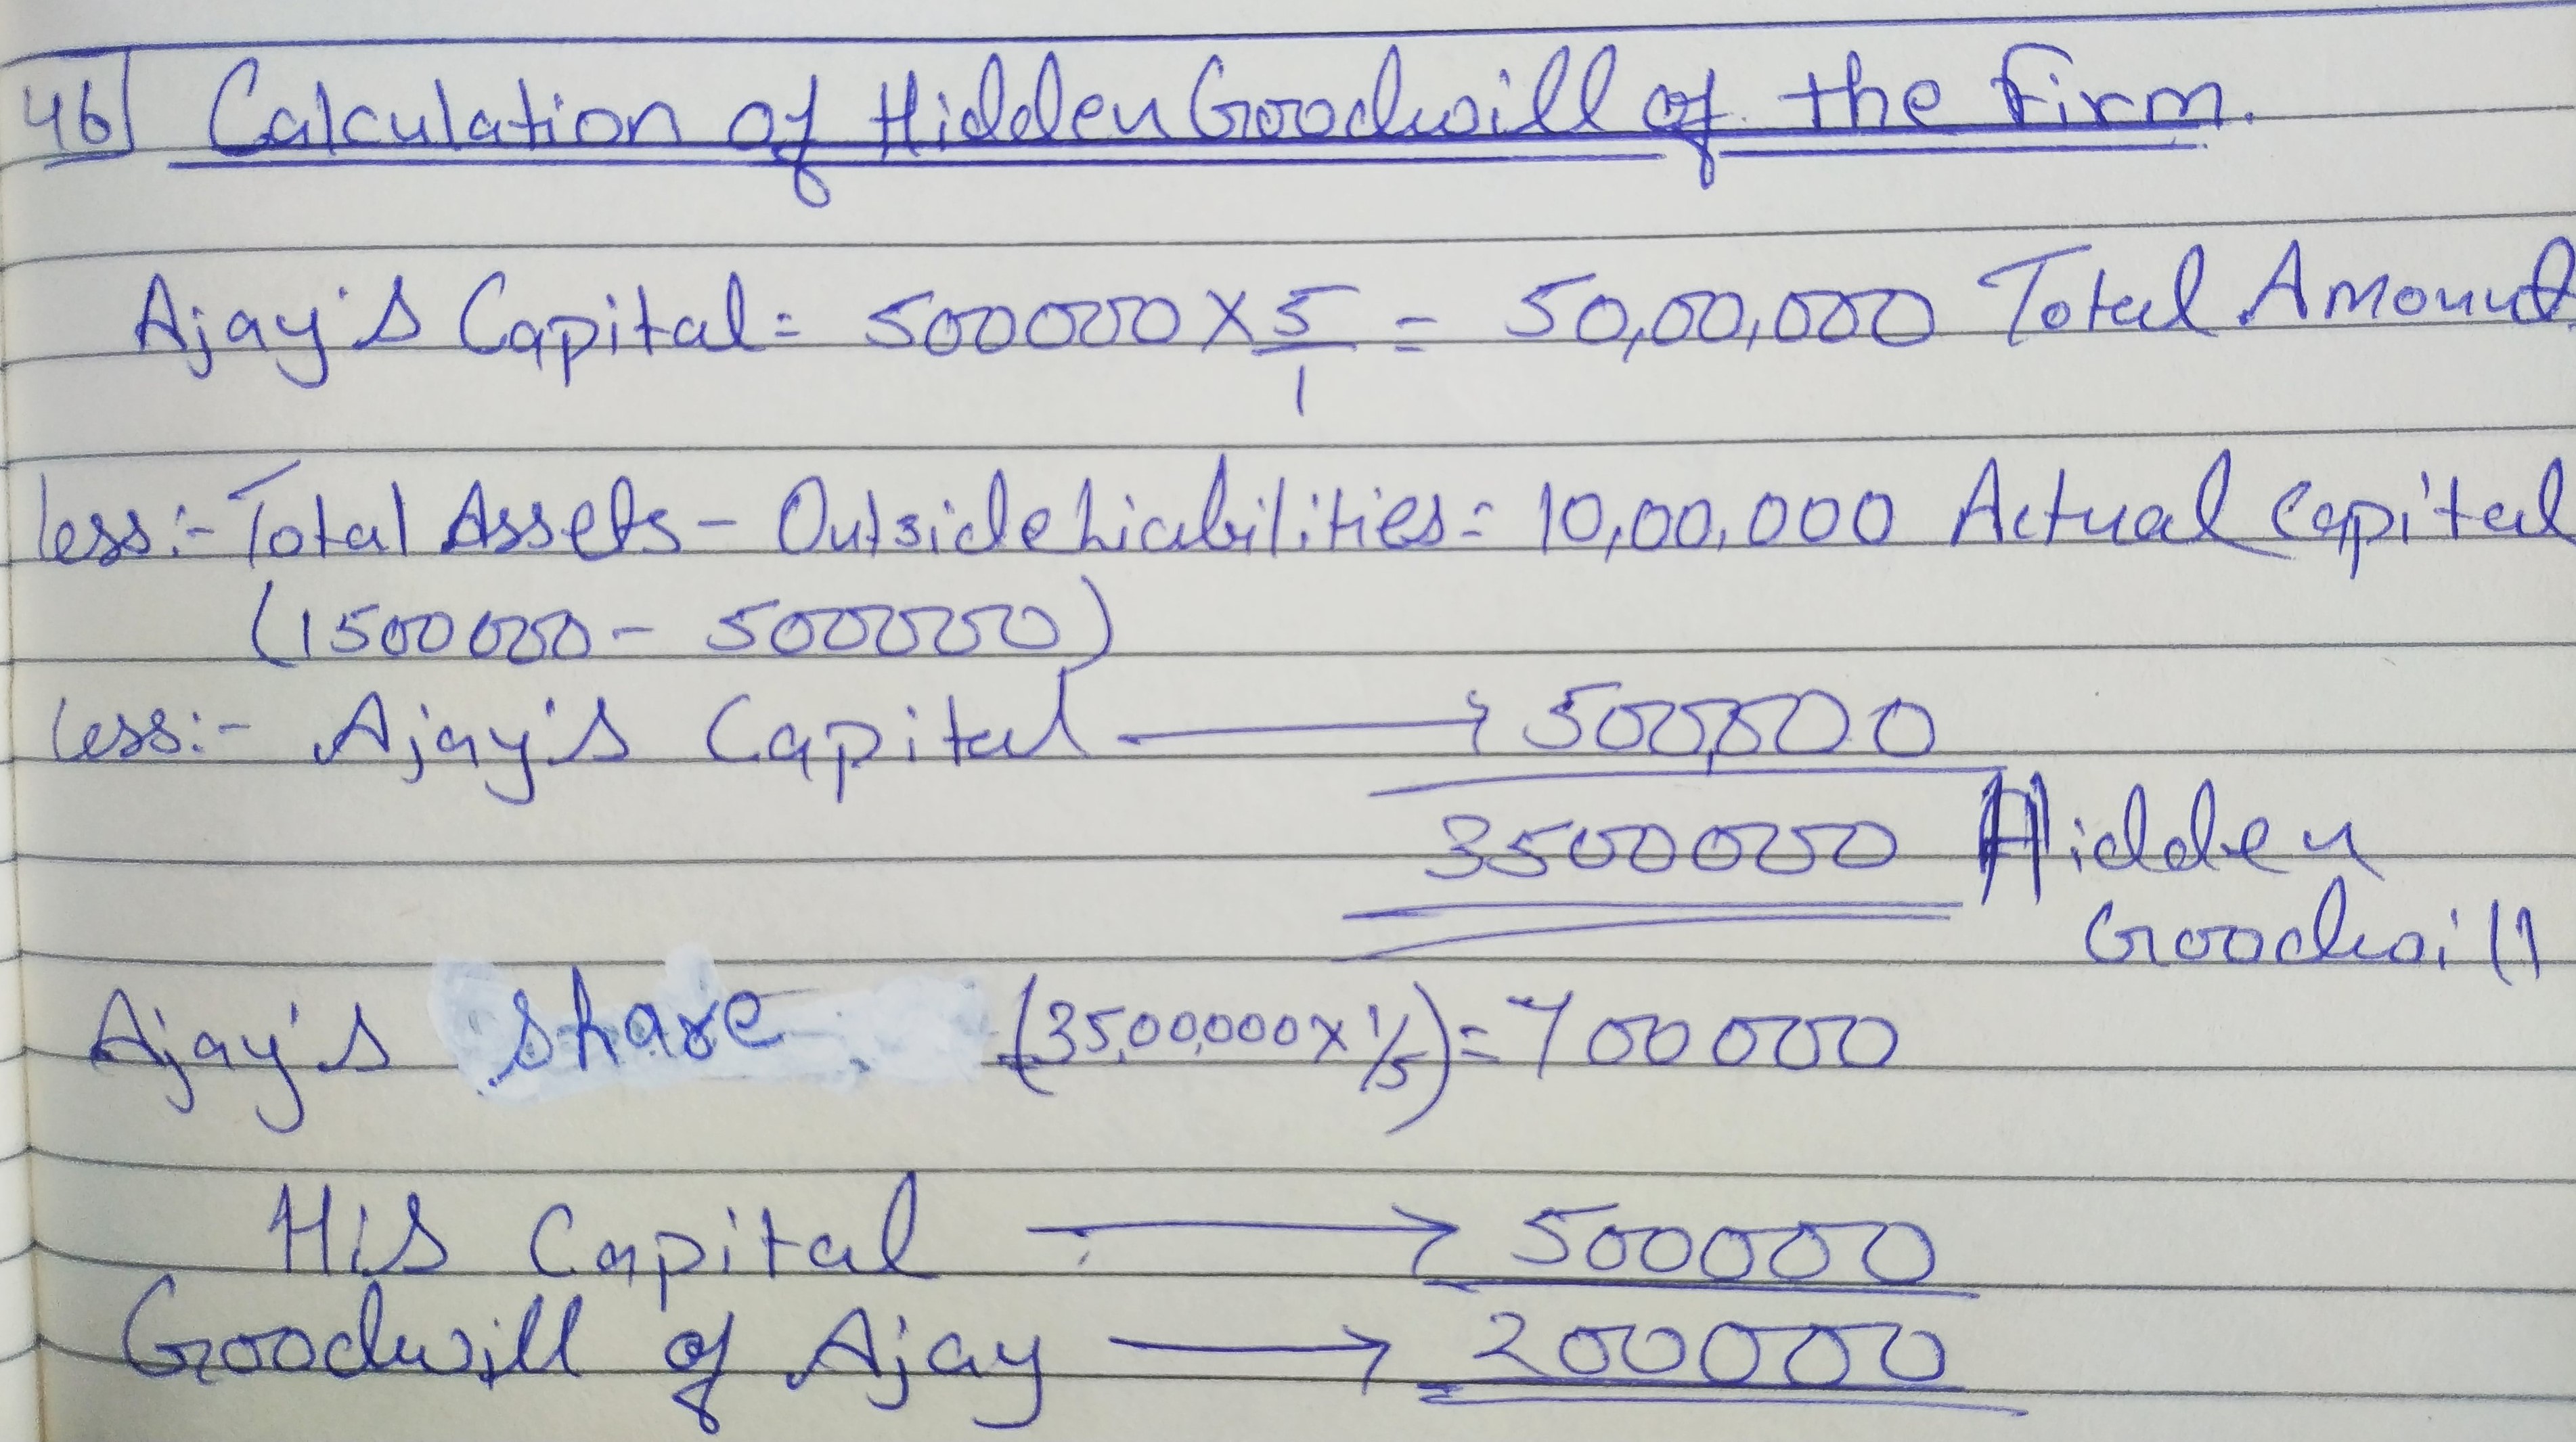 46 Calculation of Hidden Goodwill of the Firm.
Ajay's Capital = 500000 × 5/1 = 50,00,000 Total Amount
less:- Total Assets - Outside Liabilities = 10,00,000 Actual Capital
(1500000 - 500000)
less:- Ajay's Capital → 500,000
3500000 Hidden
Goodwill
Ajay's share (35,00,000 × 1/5) = 700000
His Capital → 500000
Goodwill of Ajay → 200000